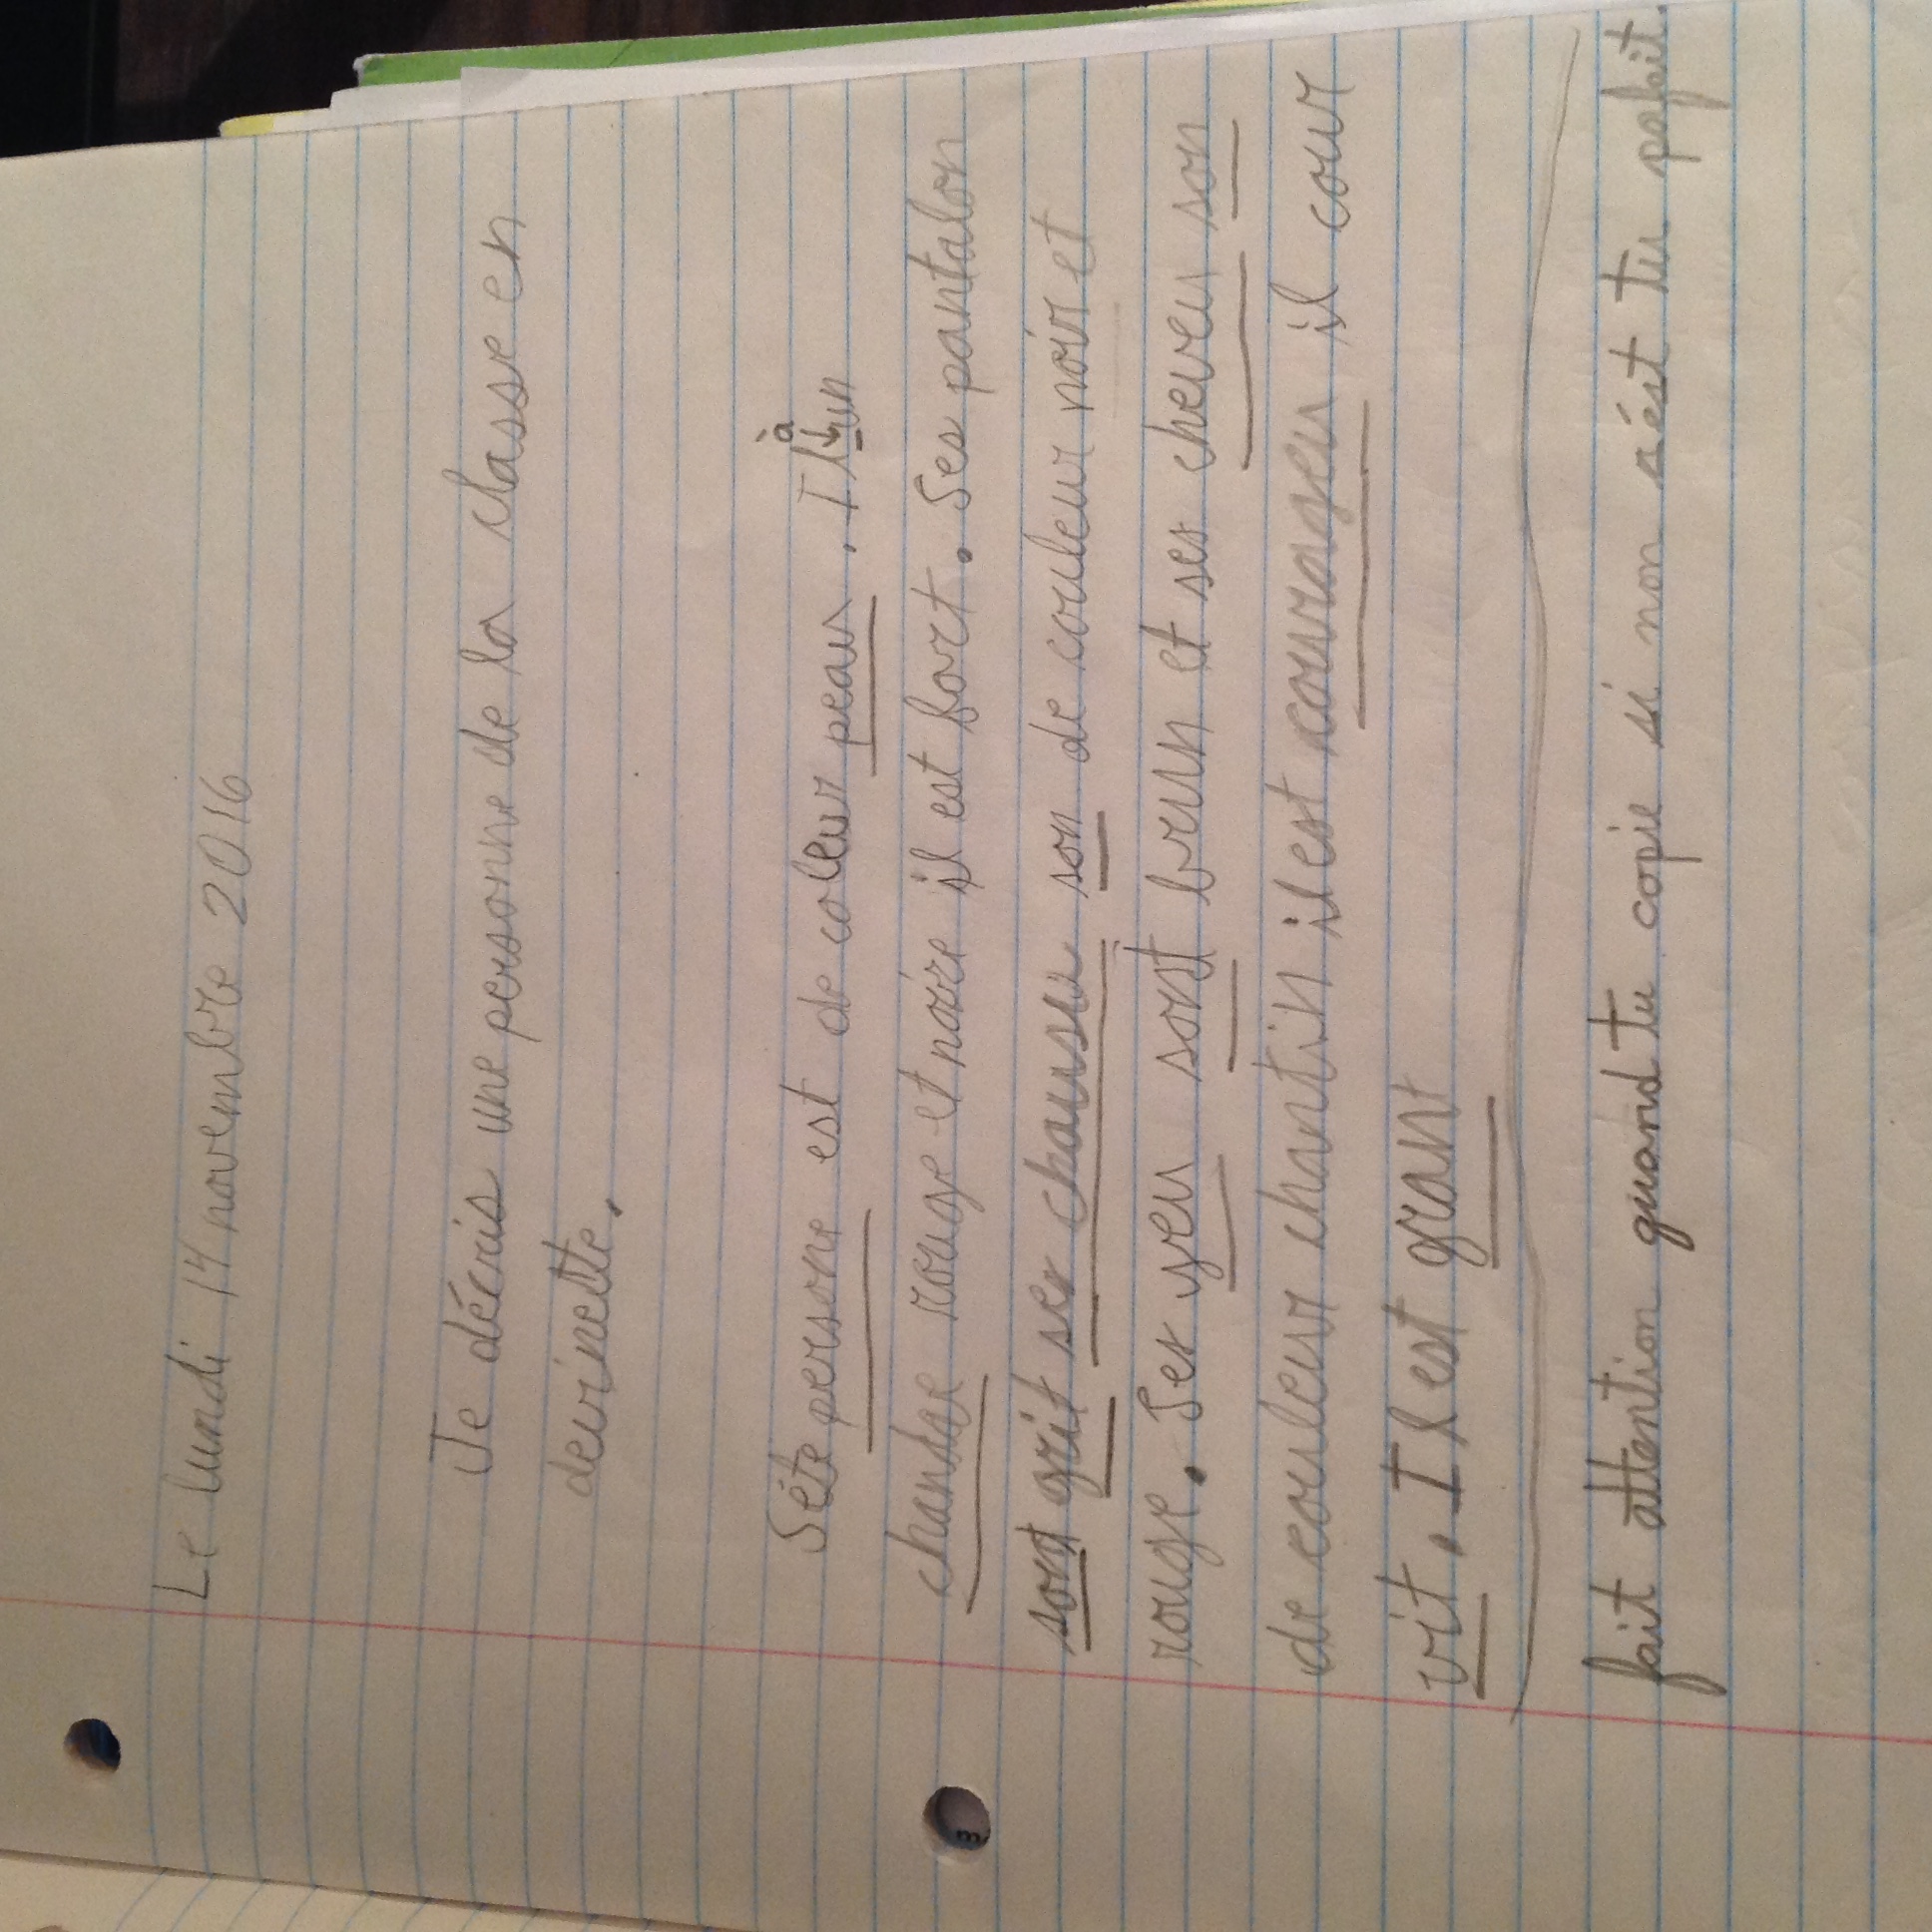 Le lundi 14 novembre 2016
Je décris une personne de la classe en
devinette.
Séte persone est de coleur peau. Il à un
chandae rouge et noire il est fort. Ses pantalon
sont grit ses chausu son de couleur noir et
rouge. Ses yeu sont brun et ses cheveu son
de couleur chantin il est courageu il cour
vit. Il est grant
fait attention quand tu copie si non s'ést tu pafait.